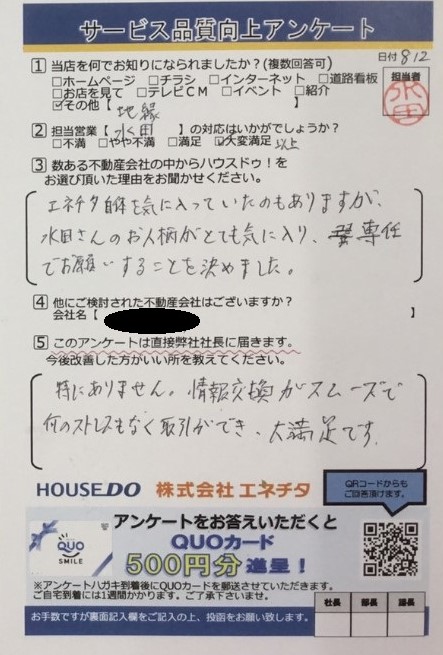 サービス品質向上アンケート
日付 8 12
1 当店を何でお知りになられましたか?(複数回答可)
□ホームページ □チラシ □インターネット □道路看板
□お店を見て □テレビCM □イベント □紹介
☑その他【 地縁 】
担当者
水田
2 担当営業【 水田 】の対応はいかがでしょうか?
□不満 □やや不満 □満足 ☑大変満足 以上
3 数ある不動産会社の中からハウスドゥ!を
お選び頂いた理由をお聞かせください。
エネチタ自体を気に入っていたのもありますが、
水田さんのお人柄がとても気に入り、専任
でお願いすることを決めました。
4 他にご検討された不動産会社はございますか?
会社名【 】
5 このアンケートは直接弊社社長に届きます。
今後改善した方がいい所を教えてください。
特にありません。情報交換がスムーズで
何のストレスもなく取引ができ、大満足です
HOUSEDO 株式会社 エネチタ
QRコードからも
ご回答頂けます。
アンケートをお答えいただくと
QUOカード
500円分進呈!
QUO
SMILE
※アンケートハガキ到着後にQUOカードを郵送させていただきます。
ご自宅到着には1週間かかります。ご了承さいませ。
社長 部長 議長
お手数ですが裏面記入欄をご記入の上、投函をお願い致します。